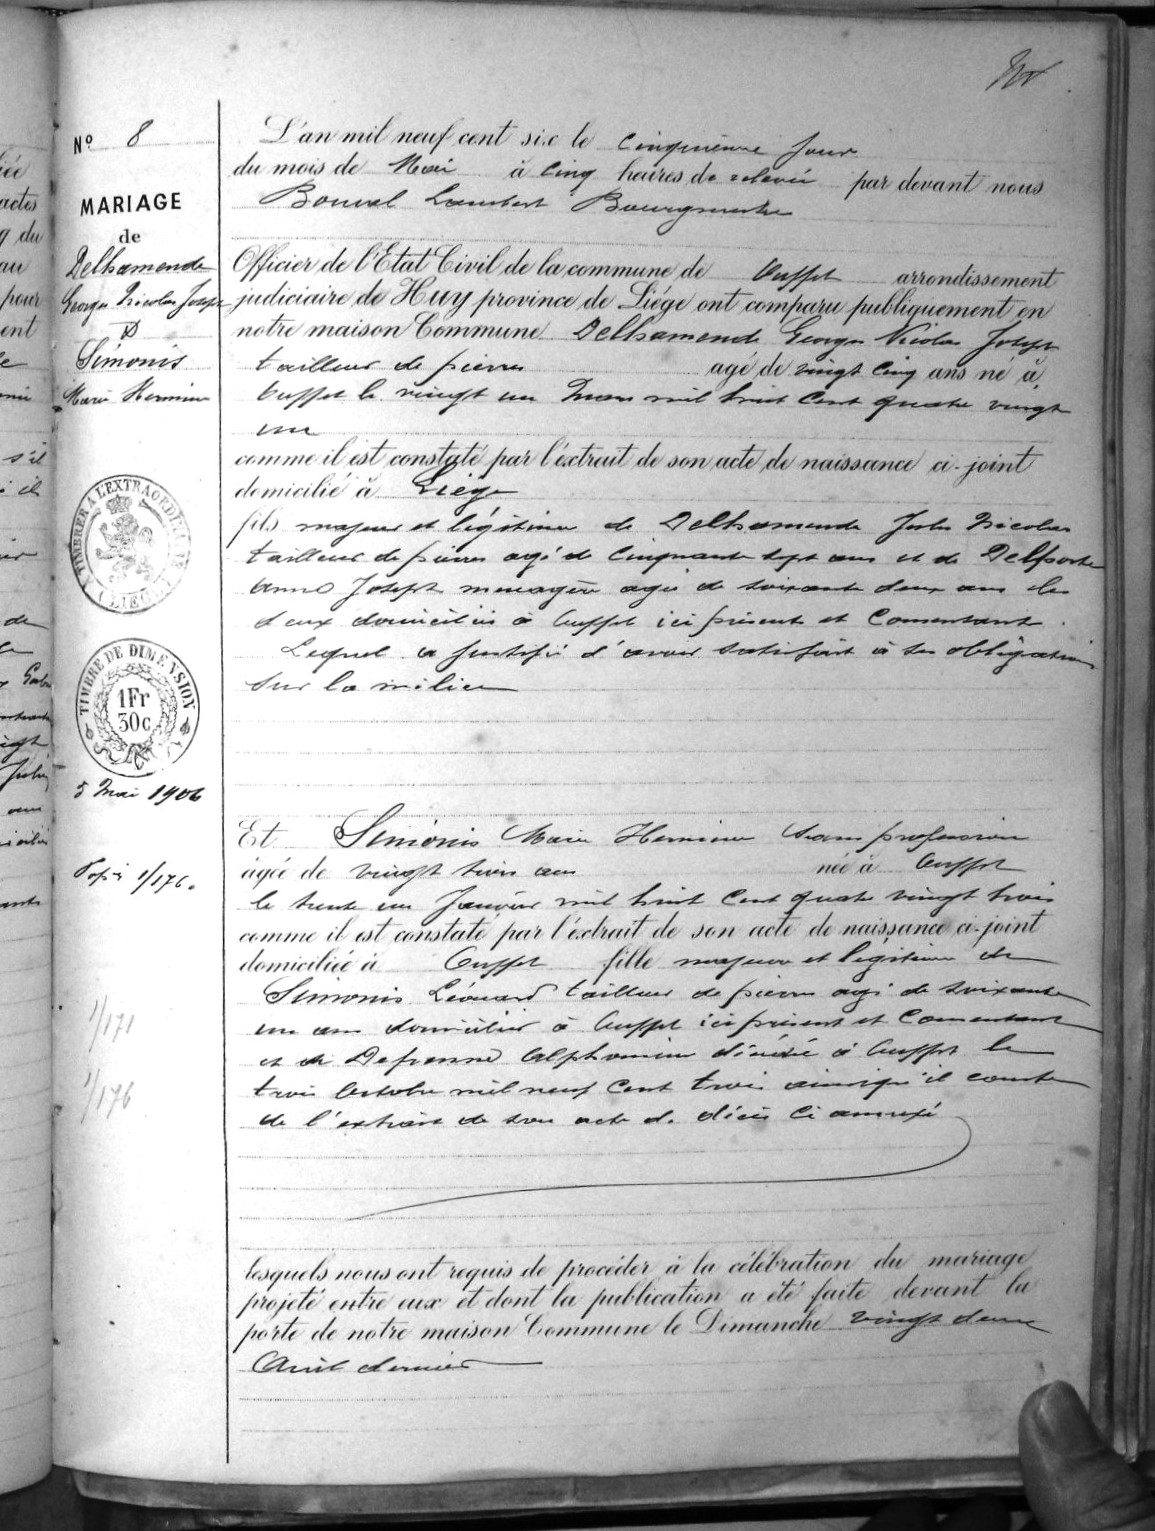 Nº 8
MARIAGE
de
Delhamende
Georges Nicolas Joseph
&
Simonis
Marie Hermine
TIMBRER A L'EXTRAORDINAIRE
LIÈGE
TIMBRE DE DIMENSION
1Fr
30c
5 Mai 1906
1/176.
1/171
1/176
L'an mil neuf cent six le cinquième jour
du mois de Mai à cinq heures de relevée par devant nous
Lambert Bourgmestre
Officier de l'Etat Civil de la commune de Ouffet arrondissement
judiciaire de Huy province de Liége ont comparu publiquement en
notre maison Commune Delhamende Georges Nicolas Joseph
tailleur de pierres agé de vingt cinq ans né à
Ouffet le vingt un Mars mil huit cent quatre vingt
un
comme il est constaté par l'éxtrait de son acte de naissance ci-joint
domicilié à Liége
fils majeur et légitime de Delhamende Jules Nicolas
tailleur de pierres agé de cinquante sept ans et de Delporte
Anne Joseph menagère agée de soixante deux ans les
deux domiciliés à Ouffet ici présents et consentant.
Lequel a justifié d'avoir satisfait à ses obligations
sur la milice
Et Simonis Marie Hermine sans profession
âgée de vingt trois ans née à Ouffet
le trente un Janvier mil huit cent quatre vingt trois
comme il est constaté par l'éxtrait de son acte de naissance ci-joint
domiciliée à Ouffet fille majeure et légitime de
Simonis Léonard tailleur de pierres agé de soixante
un ans domicilié à Ouffet ici présent et consentant
et de Defrenne Alphonsine décédée à Ouffet le
trois Octobre mil neuf cent trois ainsi qu'il conste
de l'extrait de son acte de décès ci annexé
lesquels nous ont requis de procéder à la célébration du mariage
projeté entre eux et dont la publication a été faite devant la
porte de notre maison Commune le Dimanche vingt deux
Avril dernier